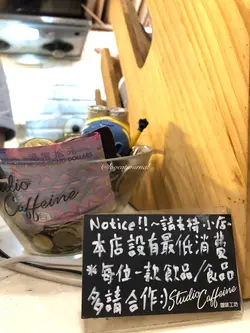 Studio
Caffeine
Notice!!~請支持小店~
本店設有最低消費
*每位一款飲品/食品
多請合作:)
Studio Caffeine
咖啡工坊